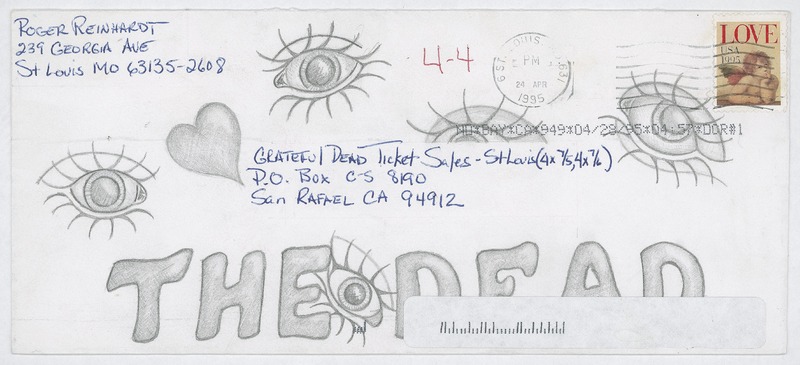 ROGER REINHARDT
239 GEORGIA AVE
ST LOUIS MO 63135-2608
4-4
ST. LOUIS 631
PM
24 APR
1995
LOVE
USA
1995
NO*BAY*CA*949*04/28/95*04:57*DOR#1
GRATEFUL DEAD TICKET SALES - ST LOUIS (4x 7/5, 4x 7/6)
P.O. BOX CS 8190
SAN RAFAEL CA 94912
THE DEAD